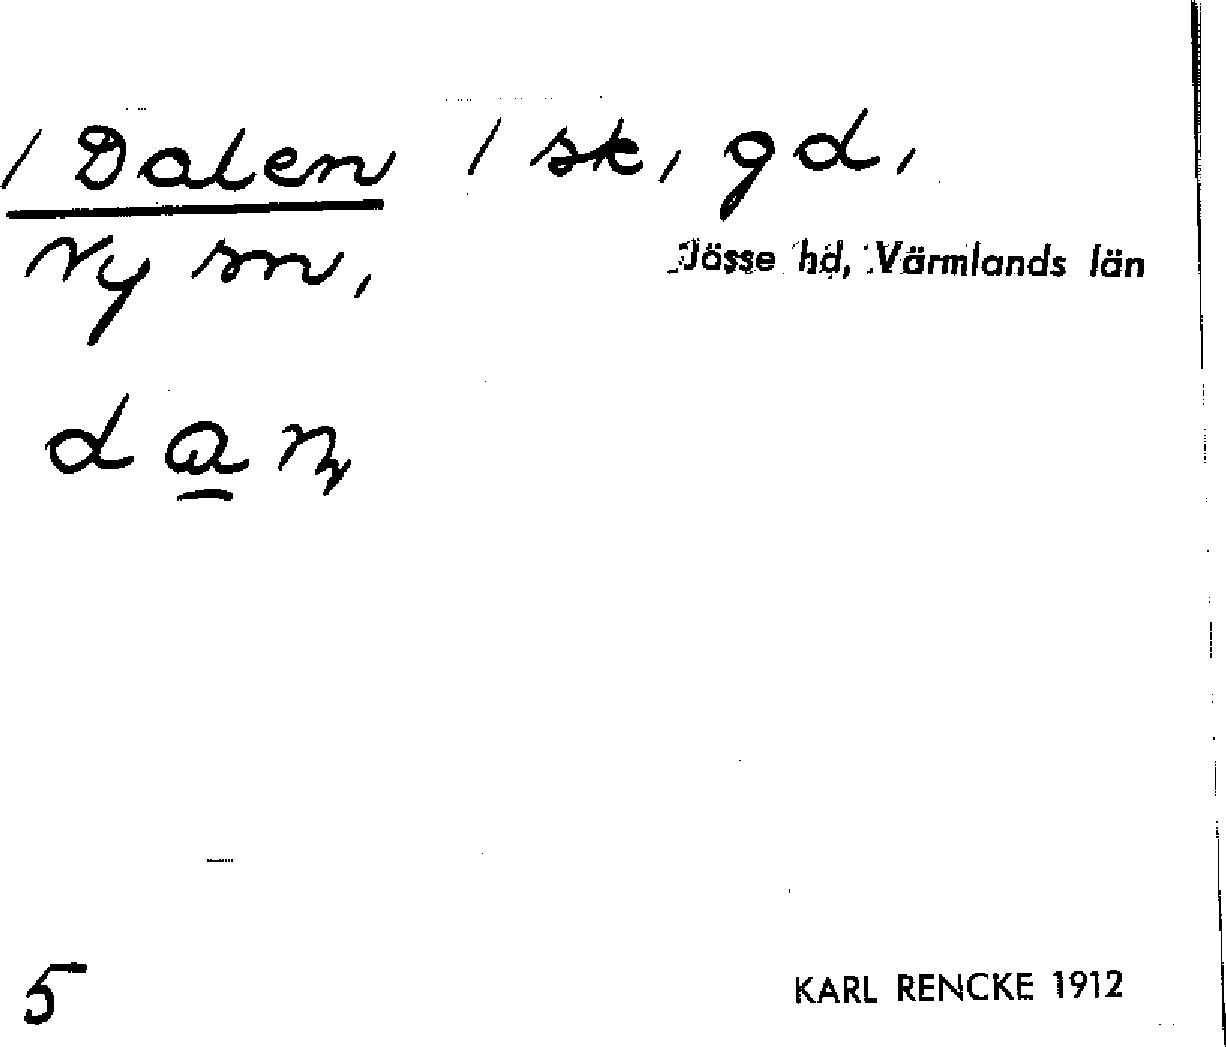 / Dalen / sk, gd,
Ny sn, Jösse hd, Värmlands län
dan,
5 KARL RENCKE 1912